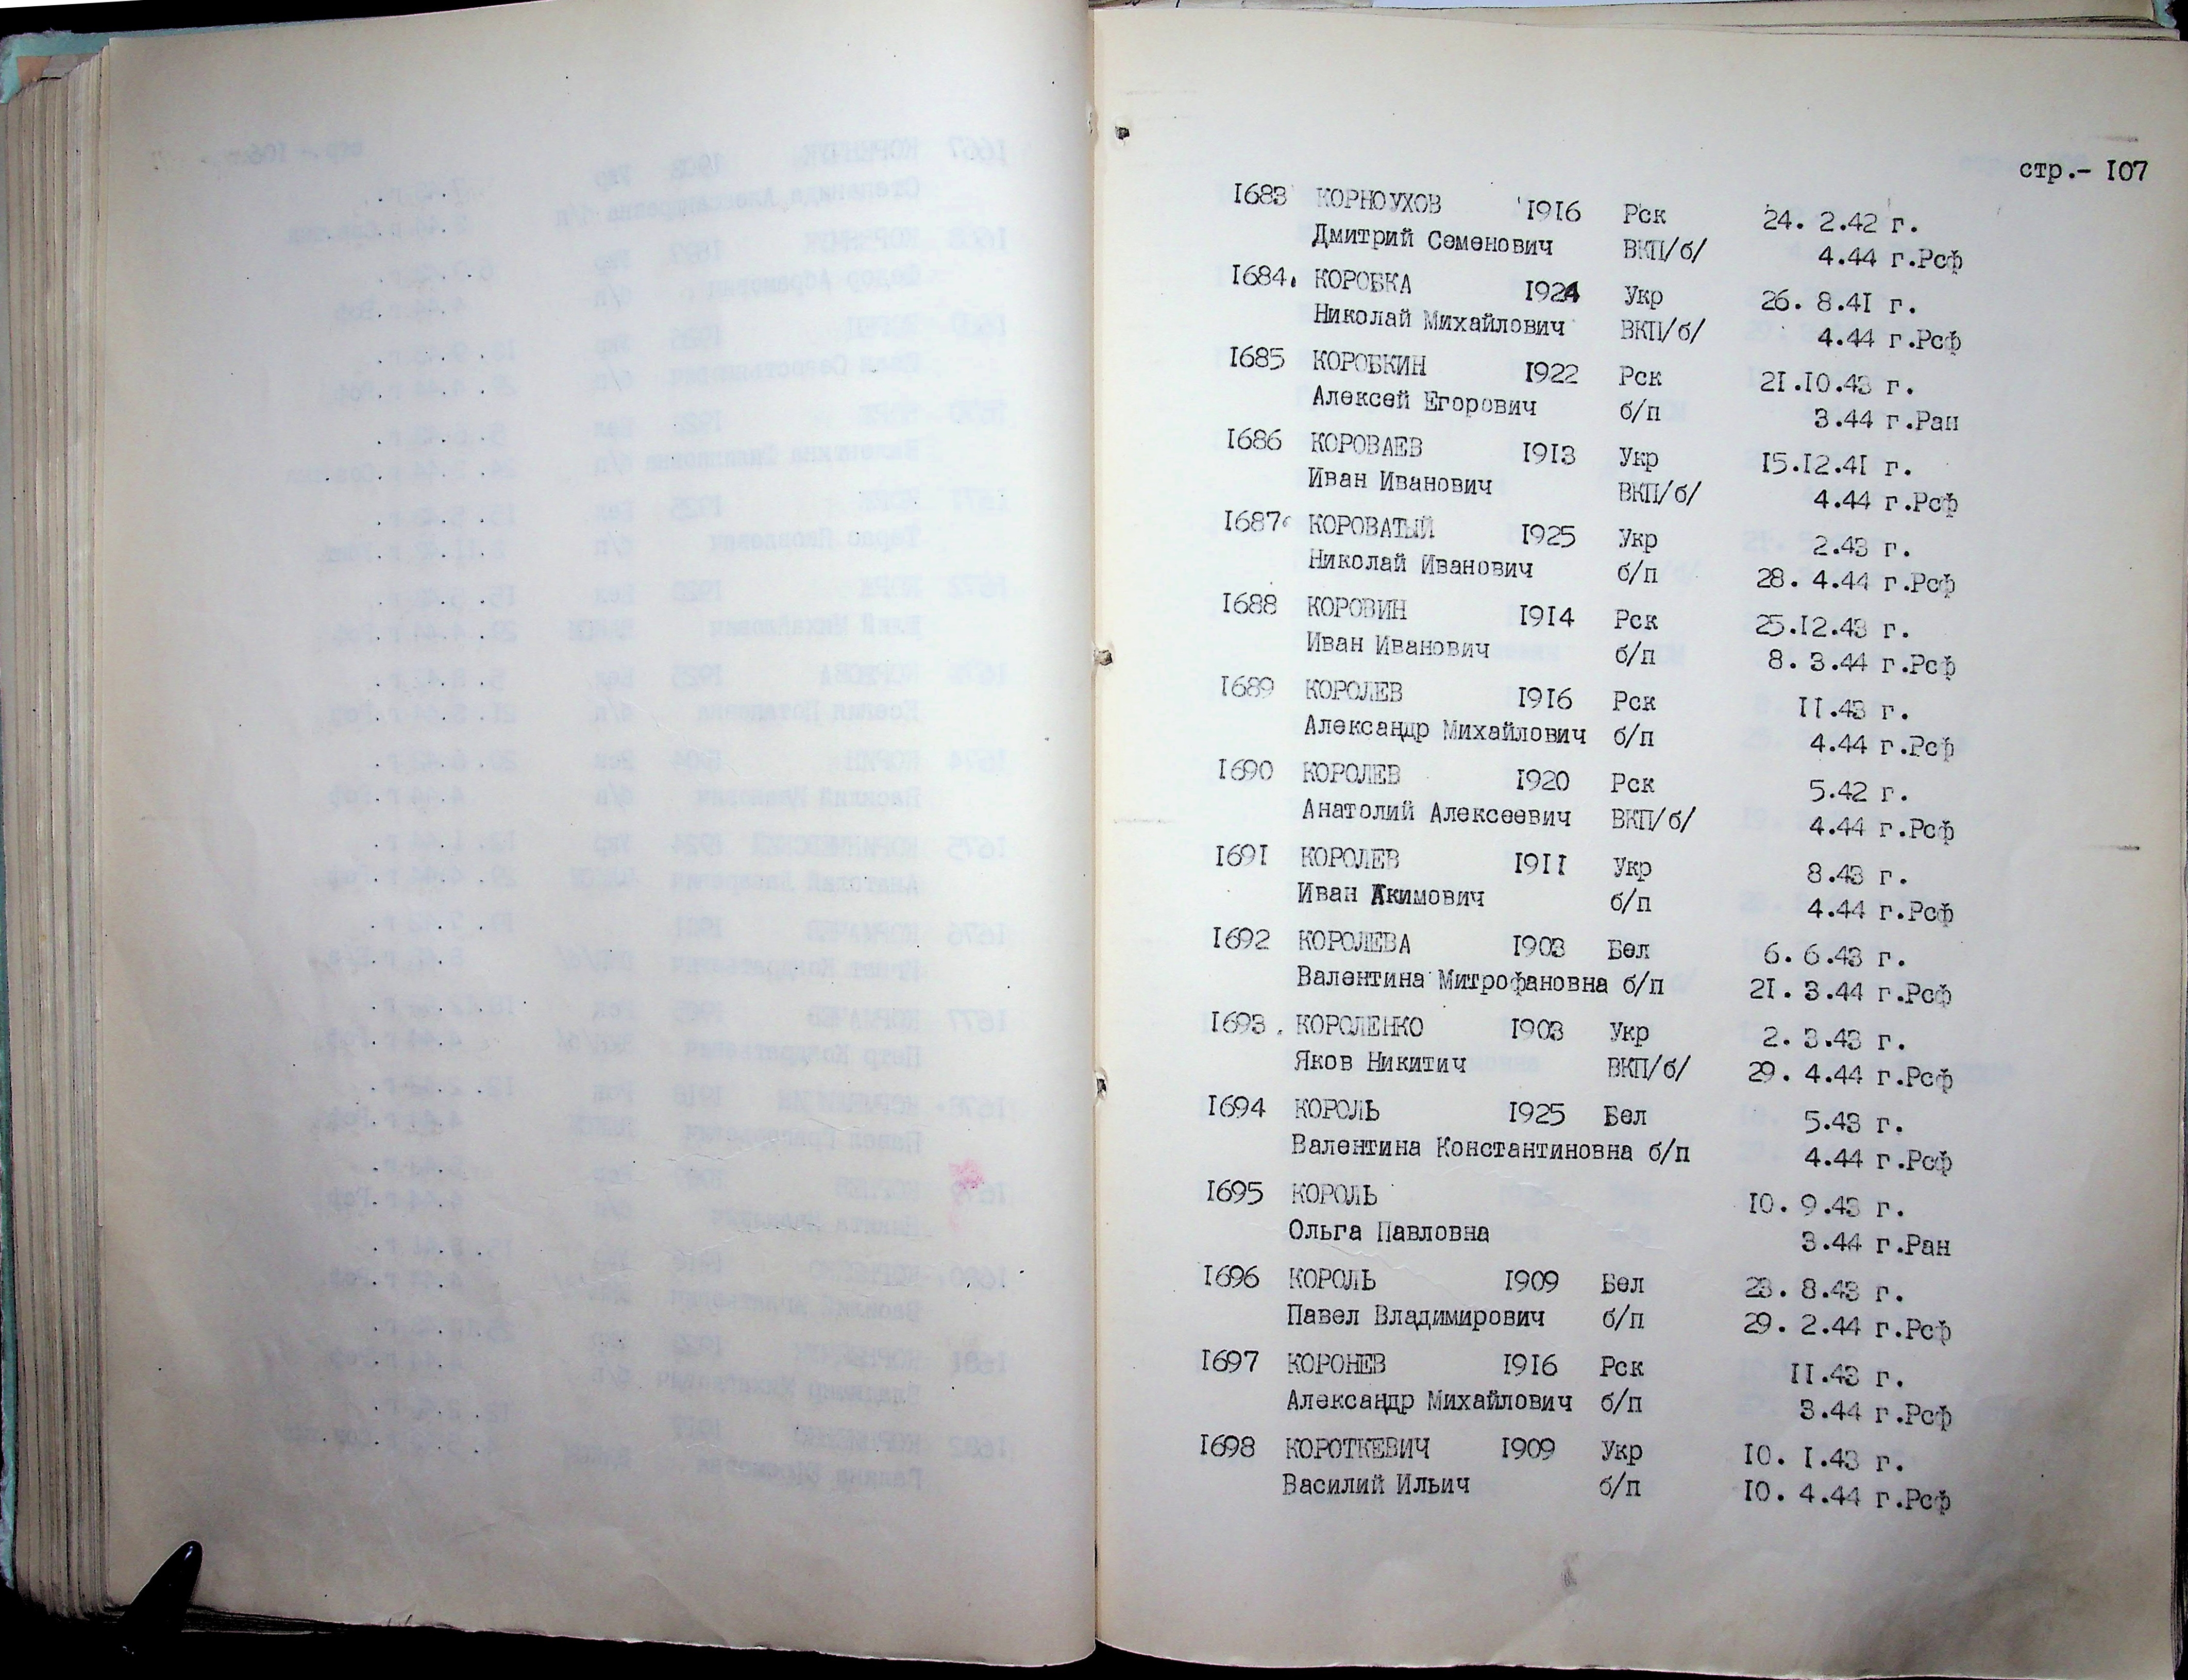 стр.- 107
1683 КОРНОУХОВ 1916 Рск 24. 2.42 г.
Дмитрий Семенович ВКП/б/ 4.44 г.Рсф
1684. КОРОБКА 1924 Укр 26. 8.41 г.
Николай Михайлович ВКП/б/ 4.44 г.Рсф
1685 КОРОБКИН 1922 Рск 21.10.43 г.
Алексей Егорович б/п 3.44 г.Ран
1686 КОРОВАЕВ 1913 Укр 15.12.41 г.
Иван Иванович ВКП/б/ 4.44 г.Рсф
1687 КОРОВАТЫЙ 1925 Укр 2.43 г.
Николай Иванович б/п 28. 4.44 г.Рсф
1688 КОРОВИН 1914 Рск 25.12.43 г.
Иван Иванович б/п 8. 3.44 г.Рсф
1689 КОРОЛЕВ 1916 Рск 11.43 г.
Александр Михайлович б/п 4.44 г.Рсф
1690 КОРОЛЕВ 1920 Рск 5.42 г.
Анатолий Алексеевич ВКП/б/ 4.44 г.Рсф
1691 КОРОЛЕВ 1911 Укр 8.43 г.
Иван Акимович б/п 4.44 г.Рсф
1692 КОРОЛЕВА 1903 Бел 6. 6.43 г.
Валентина Митрофановна б/п 21. 3.44 г.Рсф
1693. КОРОЛЕНКО 1903 Укр 2. 3.43 г.
Яков Никитич ВКП/б/ 29. 4.44 г.Рсф
1694 КОРОЛЬ 1925 Бел 5.43 г.
Валентина Константиновна б/п 4.44 г.Рсф
1695 КОРОЛЬ 10. 9.43 г.
Ольга Павловна 3.44 г.Ран
1696 КОРОЛЬ 1909 Бел 23. 8.43 г.
Павел Владимирович б/п 29. 2.44 г.Рсф
1697 КОРОНЕВ 1916 Рск 11.43 г.
Александр Михайлович б/п 3.44 г.Рсф
1698 КОРОТКЕВИЧ 1909 Укр 10. 1.43 г.
Василий Ильич б/п 10. 4.44 г.Рсф